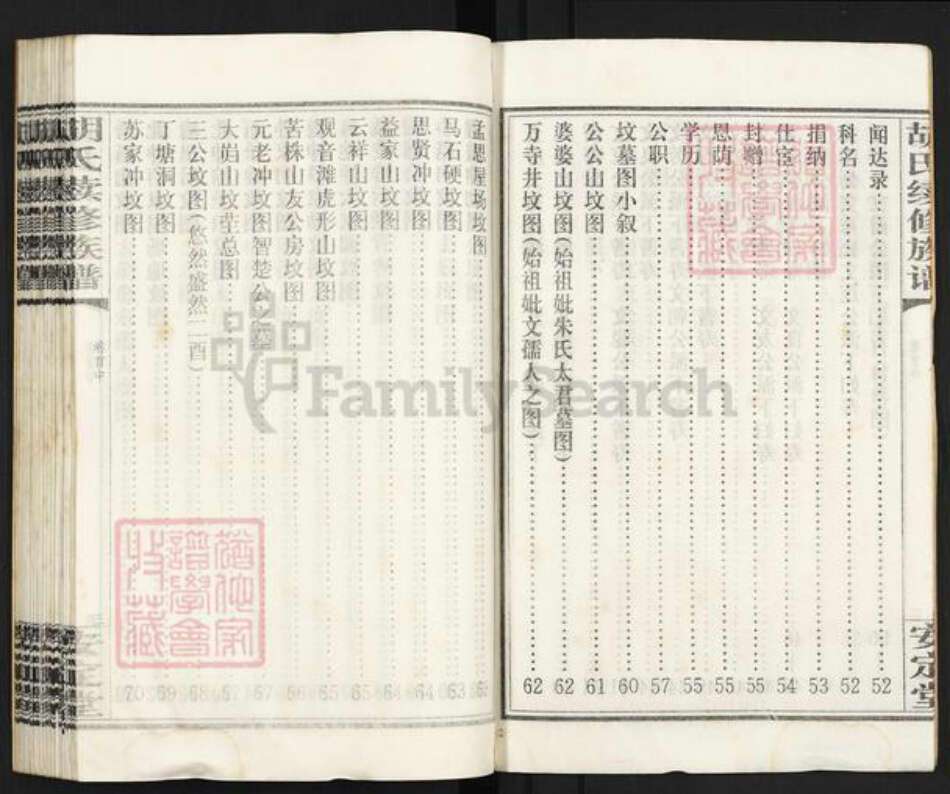 胡氏续修族谱
安定堂
闻达录 52
科名 52
捐纳 53
仕宦 54
封赠 55
恩荫 55
学历 55
公职 57
坟墓图小叙 60
公公山坟图 61
婆婆山坟图(始祖妣朱氏太君墓图) 62
万寺井坟图(始祖妣文儒人之图) 62
孟思屋场坟图
马石硬坟图 63
思贤冲坟图 64
益家山坟图 64
云祥山坟图 65
观音滩虎形山坟图 65
苦株山友公房坟图 66
元老冲坟图智楚公墓 67
大山坟茔总图 67
三公坟图(悠然盛然二酉) 68
丁塘洞坟图 69
苏家冲坟图 70
胡氏族修族谱
卷首中
安定堂
FamilySearch
猶他家譜學會收藏
猶他家譜學會收藏